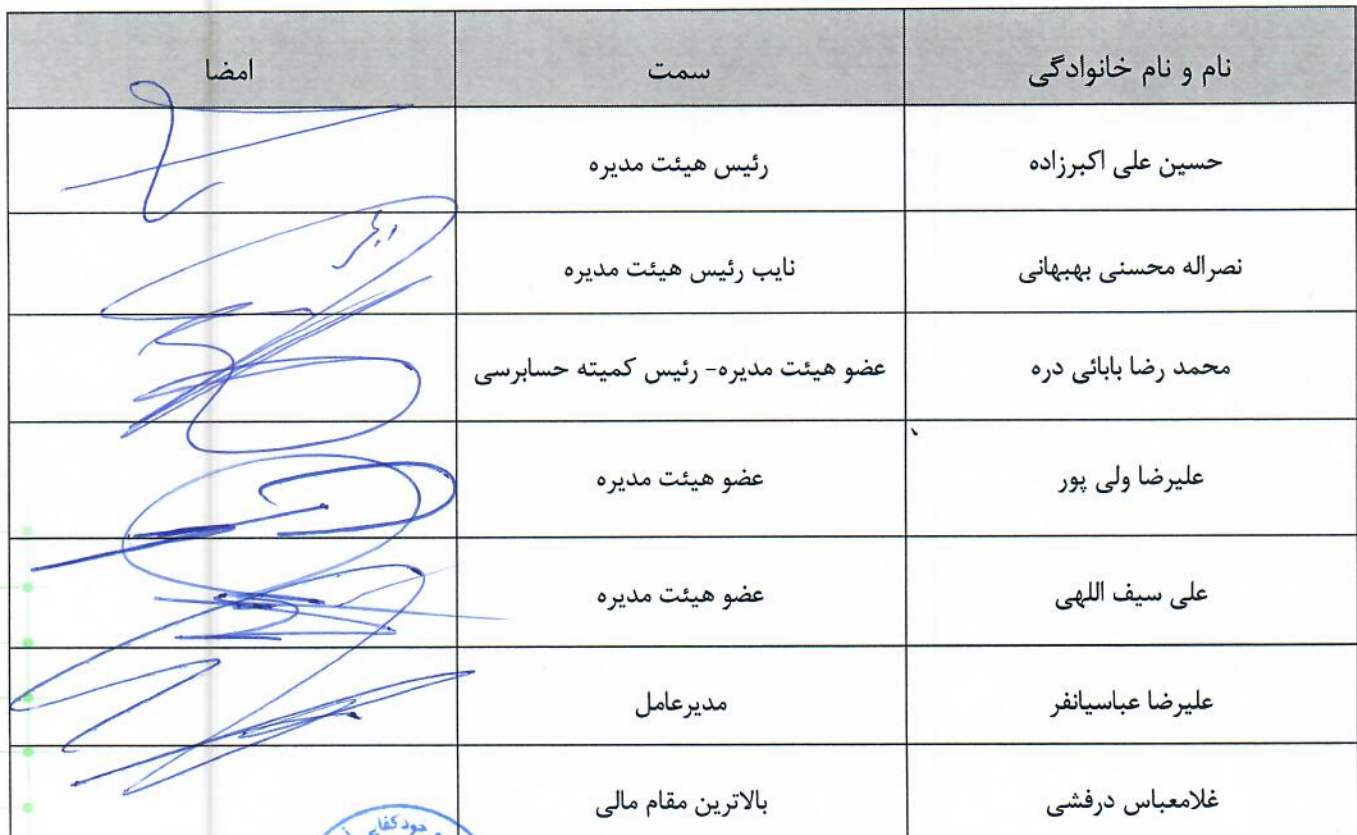 نام و نام خانوادگی سمت امضا
حسین علی اکبرزاده رئیس هیئت مدیره
نصراله محسنی بهبهانی نایب رئیس هیئت مدیره
محمد رضا بابائی دره عضو هیئت مدیره- رئیس کمیته حسابرسی
علیرضا ولی پور عضو هیئت مدیره
علی سیف اللهی عضو هیئت مدیره
علیرضا عباسیانفر مدیرعامل
غلامعباس درفشی بالاترین مقام مالی